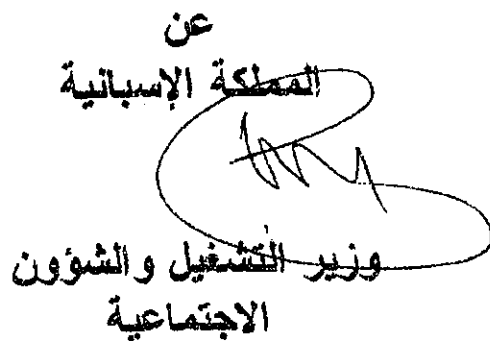 عن
المملكة الإسبانية
وزير التشغيل والشؤون
الاجتماعية